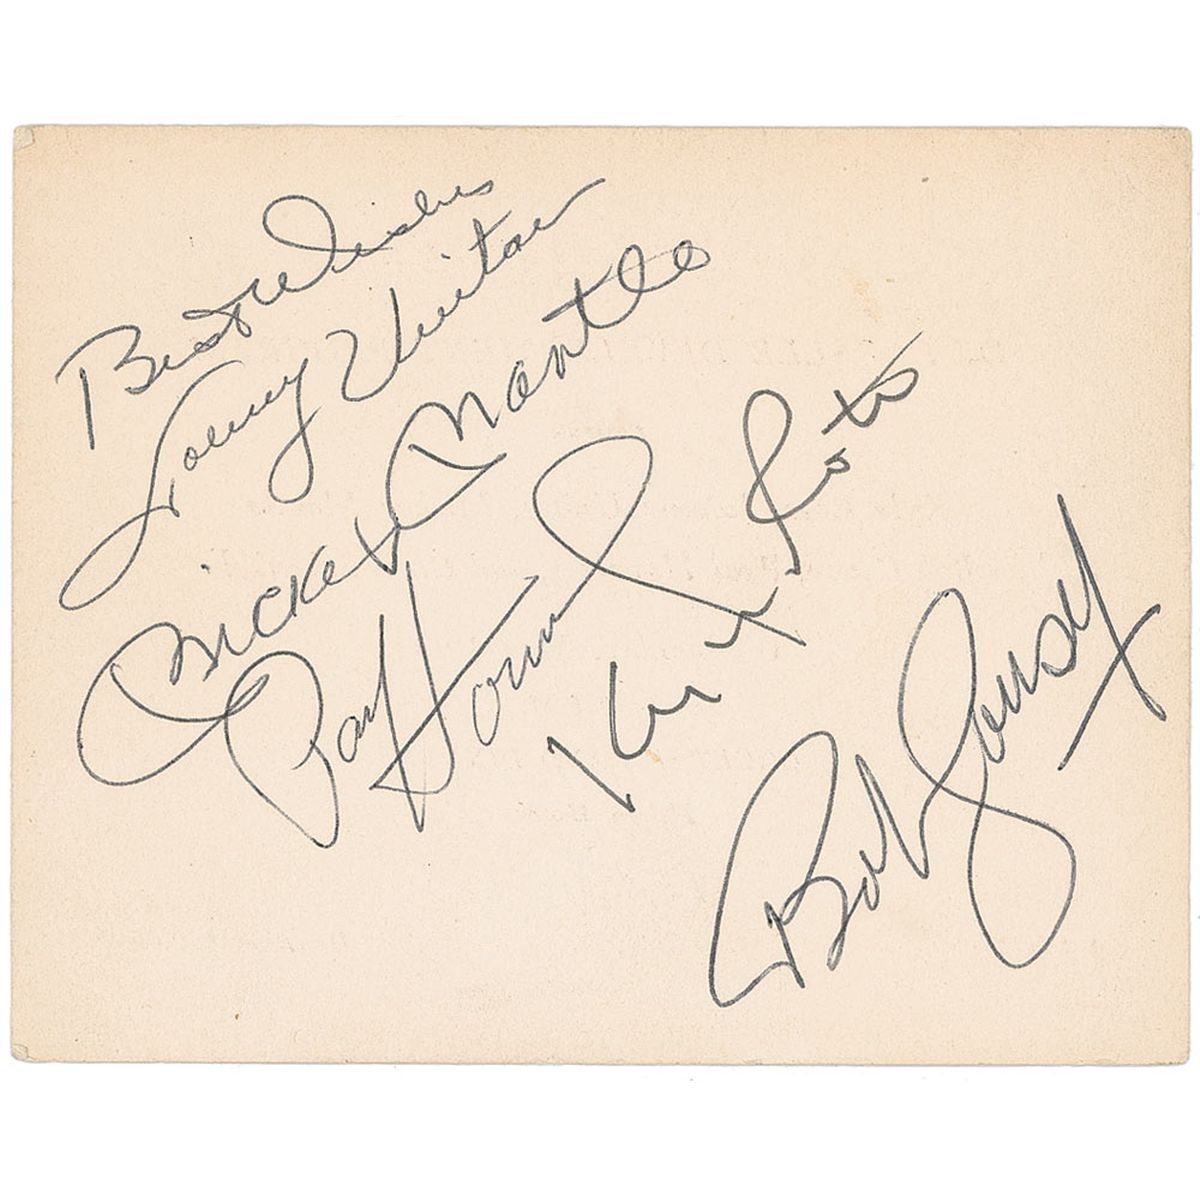 Best Wishes
Johnny Unitas
Mickey Mantle
Paul Hornung
Kyle Rote
Bob Cousy